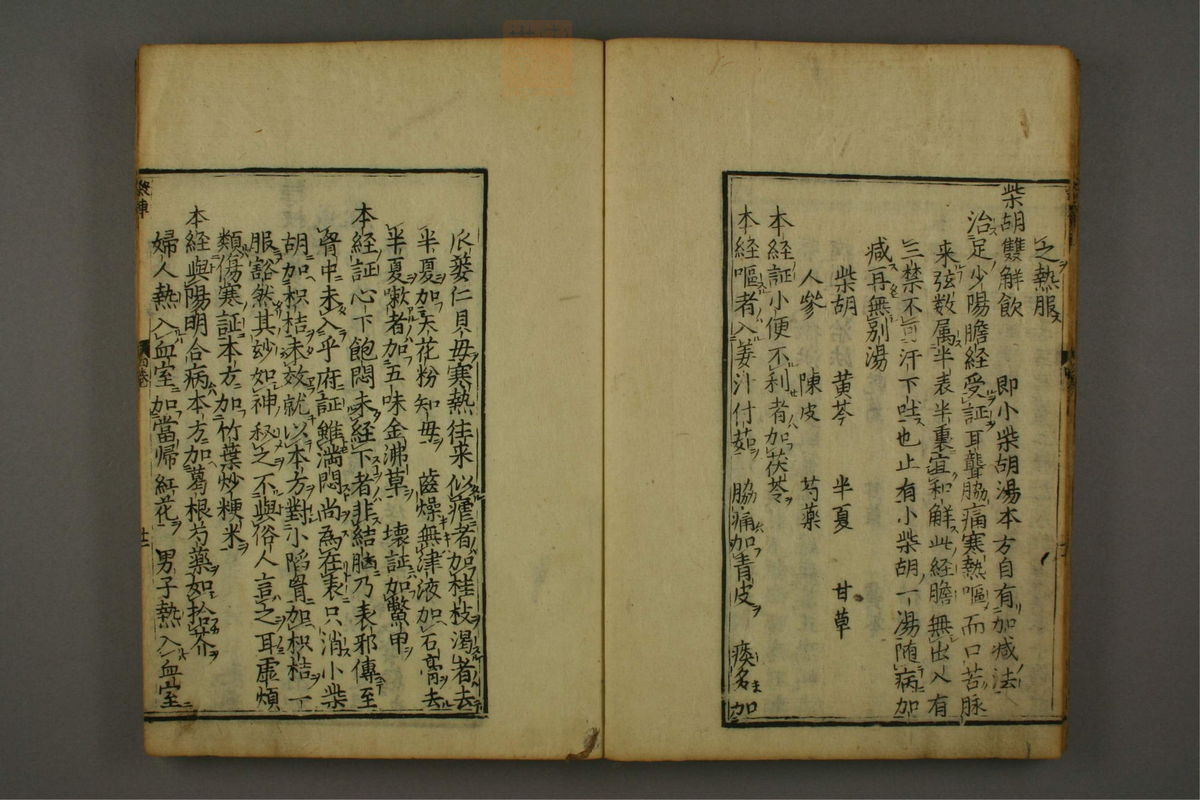 之熱服
柴胡雙解飲　即小柴胡湯本方自有加减法
治足少陽膽經受証耳聾脇痛寒熱嘔而口苦脉
来弦数属半表半裏宜和解此経膽無出入有
三禁不可汗下吐也止有小柴胡一湯随病加
减再無別湯
柴胡　黄芩　半夏　甘草
人參　陳皮　芍藥
本経証小便不利者加茯苓
本経嘔者入姜汁付茹　脇痛加青皮　痰多加
瓜蔞仁貝母寒熱徃来似瘧者加桂枝渇者去
半夏加天花粉知母　齒燥無津液加石膏去
半夏嗽者加五味金沸草　壊証加鱉甲
本経証心下飽悶未経下者非結胸乃表邪傳至
胷中未入乎府証雖満悶尚為在表只消小柴
胡加枳桔未效就以本方對小䧟胷加枳桔一
服豁然其玅如神秘之不與俗人言之耳虚煩
類傷寒証本方加竹葉炒粳米
本経與陽明合病本方加葛根芍藥如拾芥
婦人熱入血室加當帰紅花　男子熱入血室